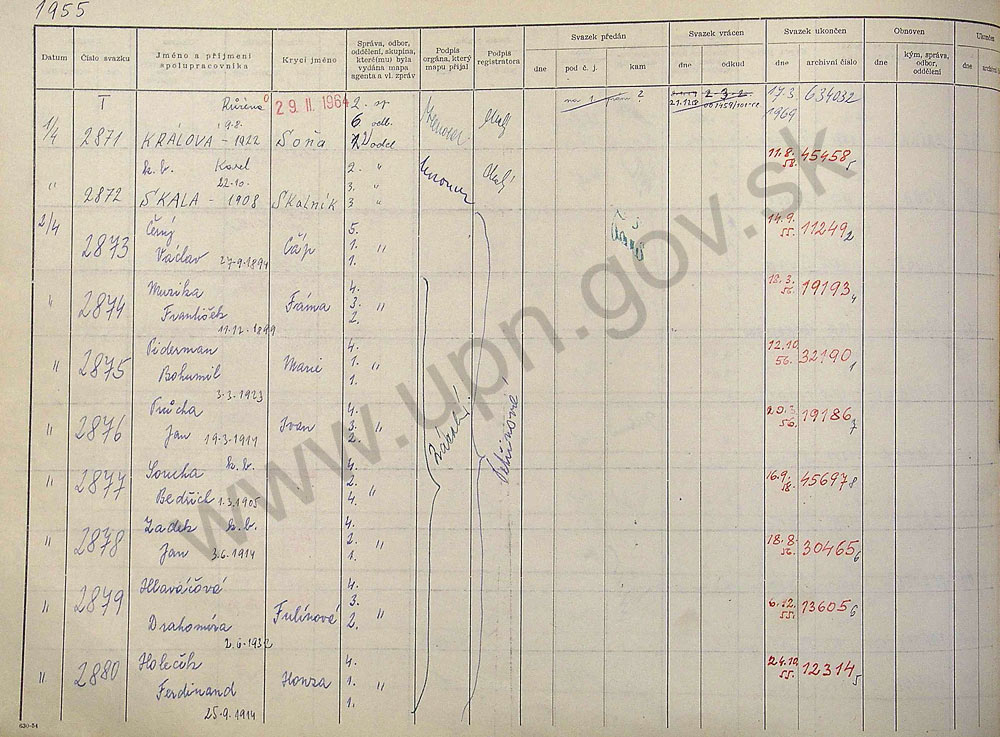 1955
Datum
Číslo svazku
Jméno a příjmení spolupracovníka
Krycí jméno
Správa, odbor, oddělení, skupina, které(mu) byla vydána mapa agenta a vl. zpráv
Podpis orgána, který mapu přijal
Podpis registratora
Svazek předán
dne
pod č. j.
kam
Svazek vrácen
dne
odkud
Svazek ukončen
dne
archivní číslo
Obnoven
kým, správa, odbor, oddělení
Ukončen
dne
I
Růžena
29. II. 1964
2. sp
17.3. 1969
634032
1/4
2871
KRÁLOVÁ - 1922
9.8.
Soňa
6. odb.
k. b.
Karel
2. "
11.8. 58.
45458 5
"
2872
22-10.
SKALA - 1908
Skalník
3. "
3 "
2/4
2873
Černý
Václav 27-9-1894
Čáp
5.
1. "
1.
14.9. 55.
11249 2
"
2874
Muzika
František
11.12.1899
Fráma
4.
3. "
2.
12.3. 56.
19193 4
"
2875
Piderman
Bohumil
3.3.1923
Marie
4.
1. "
1.
12.10 56.
32190 1
"
2876
Průcha
Jan 19-3-1914
Ivan
4.
3. "
2.
20.3. 56.
19186 7
"
2877
Soucha k. b.
Bedřich 1.3.1905
4.
2.
4. "
16.9.
45697 8
"
2878
Zadek k. b.
Jan 3.6.1914
4.
2.
1. "
18.8. 56.
30465 6
"
2879
Hlaváčová
Drahomíra
2.6.1932
Fulínové
4.
3.
2. "
6.12. 55.
13605 6
"
2880
Holečik
Ferdinand
25.9.1914
Honza
4.
1. "
1.
24.10 55.
12314 5
630-54
www.upn.gov.sk